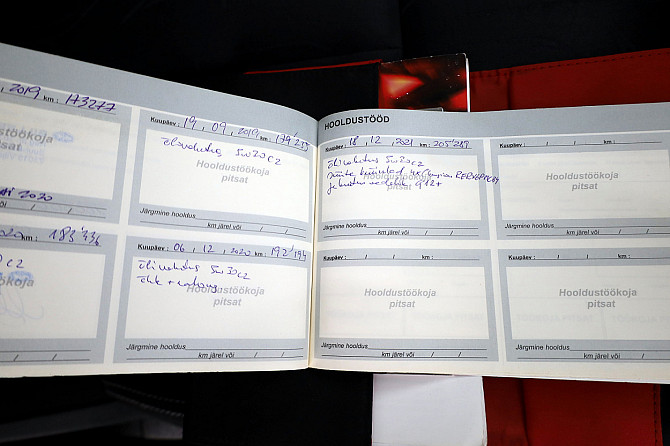 , 2019 km: 173277
töökoja
at
2020
2020 km: 183'436
cz
töökoja
at
/ /
/ /
Kuupäev: 19, 09, 2019, km: 179'259
Õlivahetus 5w20cz
Hooldustöökoja
pitsat
Järgmine hooldus
km järel või / /
Kuupäev: 06, 12, 2020 km: 192'194
Õlivahetus 5w20cz
Hooldustöökoja
pitsat
Järgmine hooldus
km järel või / /
HOOLDUSTÖÖD
Kuupäev: 18, 12, 2021 km: 205'259
Õlivahetus 5w20cz
Hooldustöökoja
pitsat
Järgmine hooldus
km järel või / /
Kuupäev: / / km:
Hooldustöökoja
pitsat
Järgmine hooldus
km järel või / /
Kuupäev: / / km:
Hooldustöökoja
pitsat
Järgmine hooldus
km järel või / /
Kuupäev: / / km:
Hooldustöökoja
pitsat
Järgmine hooldus
km järel või / /